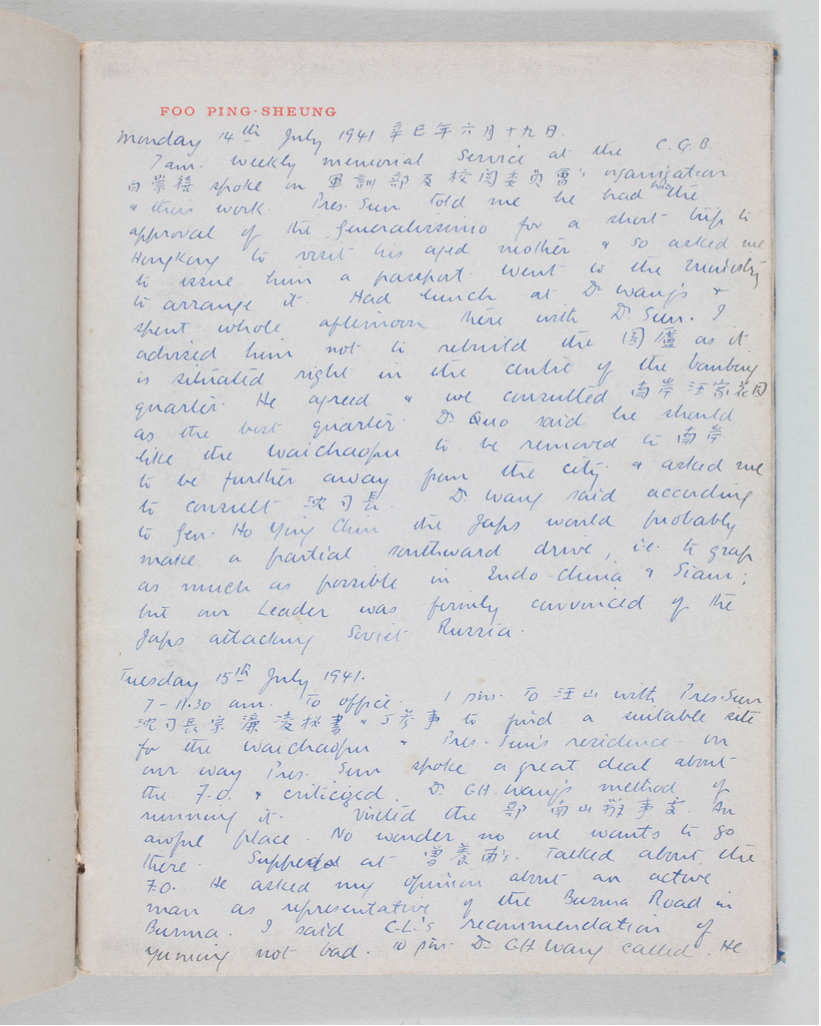 FOO PING-SHEUNG
Monday 14th July 1941 辛巳年六月十九日.
7 am. weekly memorial Service at the C.G.B.
白崇禧 spoke on 軍訓部及校閱委員會's organization
& their work. Pres. Sun told me he had had the
approval of the Generalissimo for a short trip to
Hongkong to visit his aged mother & so asked me
to issue him a passport. Went to the Ministry
to arrange it. Had lunch at Dr Wang's &
spent whole afternoon here with Dr Sun. I
advised him not to rebuild the 園廬 as it
is situated right in the centre of the bombing
quarter. He agreed & we consulted 南岸汪家花园
as the best quarter. Dr Quo said he should
like the Waichaopu to be removed to 南岸
to be further away from the city & asked me
to consult 沈司長. Dr Wang said according
to Gen. Ho Ying Chin the Japs would probably
make a partial southward drive, i.e. to grap
as much as possible in Indo-China & Siam;
but our Leader was firmly convinced of the
Japs attacking Soviet Russia.
Tuesday 15th July 1941.
7-11.30 am. To office. 1 pm. To 汪山 with Pres. Sun
沈司長宗濂凌秘書 & 丁參事 to find a suitable site
for the Waichaopu & Pres. Sun's residence. On
our way Pres. Sun spoke a great deal about
the F.O. & criticized Dr CH Wang's method of
running it. Visited the 部南山辦事處. An
awful place. No wonder no one wants to go
there. Suppered at 曾養甫's. Talked about the
F.O. He asked my opinion about an active
man as representative of the Burma Road in
Burma. I said C.L.'s recommendation of
Yuming not bad. 10 pm. Dr CH Wang called. He